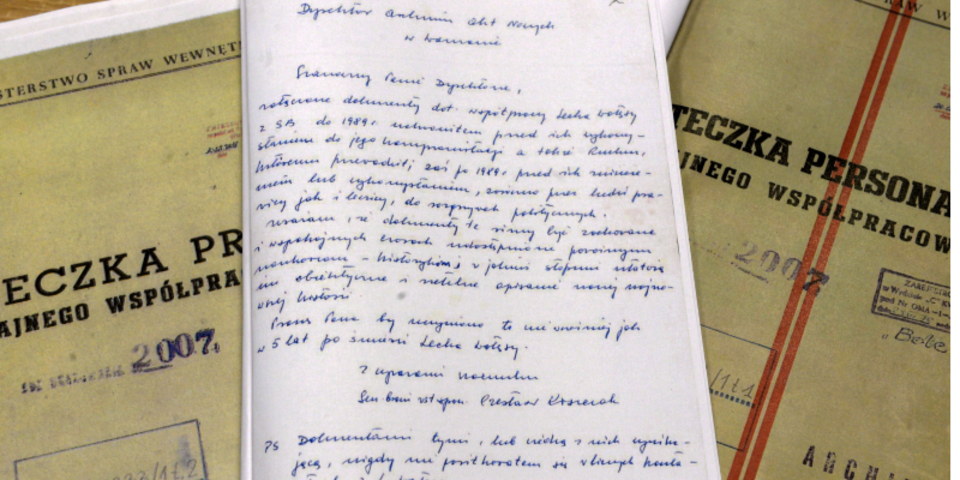 MINISTERSTWO SPRAW WEWNĘT
TECZKA PR
TAJNEGO WSPÓŁPRA
2007
Dyrektor Archiwum Akt Nowych
w Warszawie
Szanowny Panie Dyrektorze,
załączone dokumenty dot. współpracy Lecha Wałęsy
z SB do 1989 r. uchroniłem przed ich wykorzy-
staniem do jego kompromitacji a także Ruchu,
któremu przewodził; zaś po 1989 r. przed ich zniszcze-
niem lub wykorzystaniem, zarówno przez ludzi pra-
wicy jak i lewicy, do rozgrywek politycznych.
Uważam, że dokumenty te winny być zachowane
i w spokojnych czasach udostępnione poważnym
naukowcom – historykom i w jakimś stopniu ułatwią
im obiektywne i rzetelne opisanie naszej najno-
wszej historii.
Proszę Pana by uczyniono to nie wcześniej jak
w 5 lat po śmierci Lecha Wałęsy.
Z wyrazami szacunku
Gen. broni w st. spocz. Czesław Kiszczak
PS Dokumentami tymi, lub wiedzą z nich wynika-
jącą, nigdy nie posłużyłem się w licznych konta-
TECZKA PERSONA
JNEGO WSPÓŁPRACOW
2007
ZAREJESTR
w Wydziale „C" K
"Bole
ARCHI